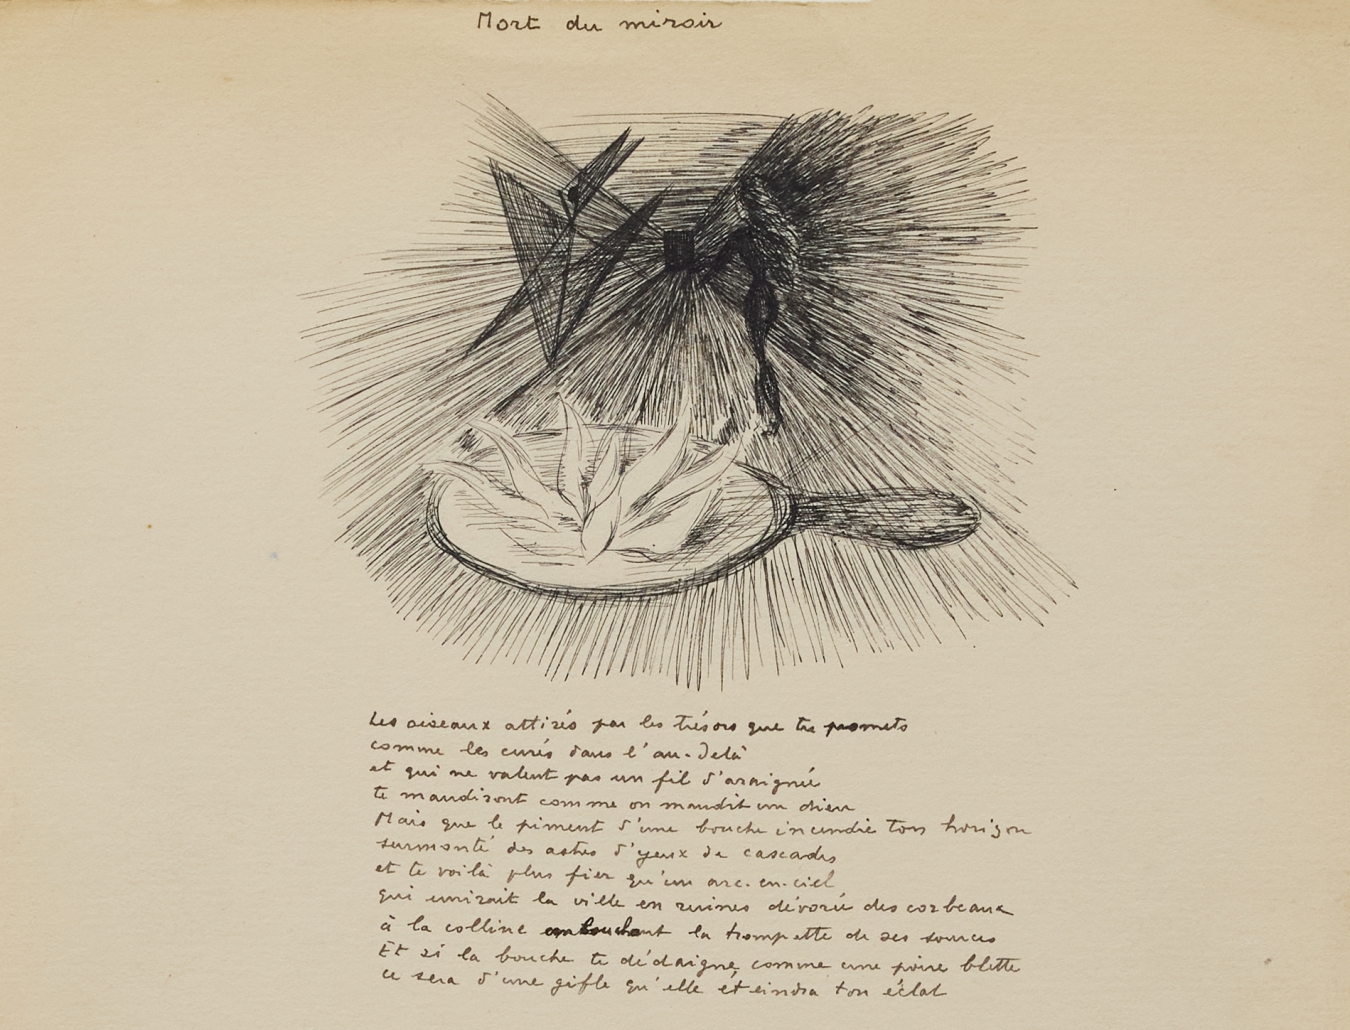 Mort du miroir
Les oiseaux attirés par les trésors que tu promets
comme les curés dans l'au-delà
et qui ne valent pas un fil d'araignée
te maudiront comme on maudit un chien
Mais que le piment d'une bouche incendie ton horizon
surmonté des astres d'yeux de cascades
et te voilà plus fier qu'un arc-en-ciel
qui unirait la ville en ruines dévorée des corbeaux
à la colline embouchant la trompette de ses sources
Et si la bouche te dédaigne comme une poire blette
ce sera d'une gifle qu'elle éteindra ton éclat